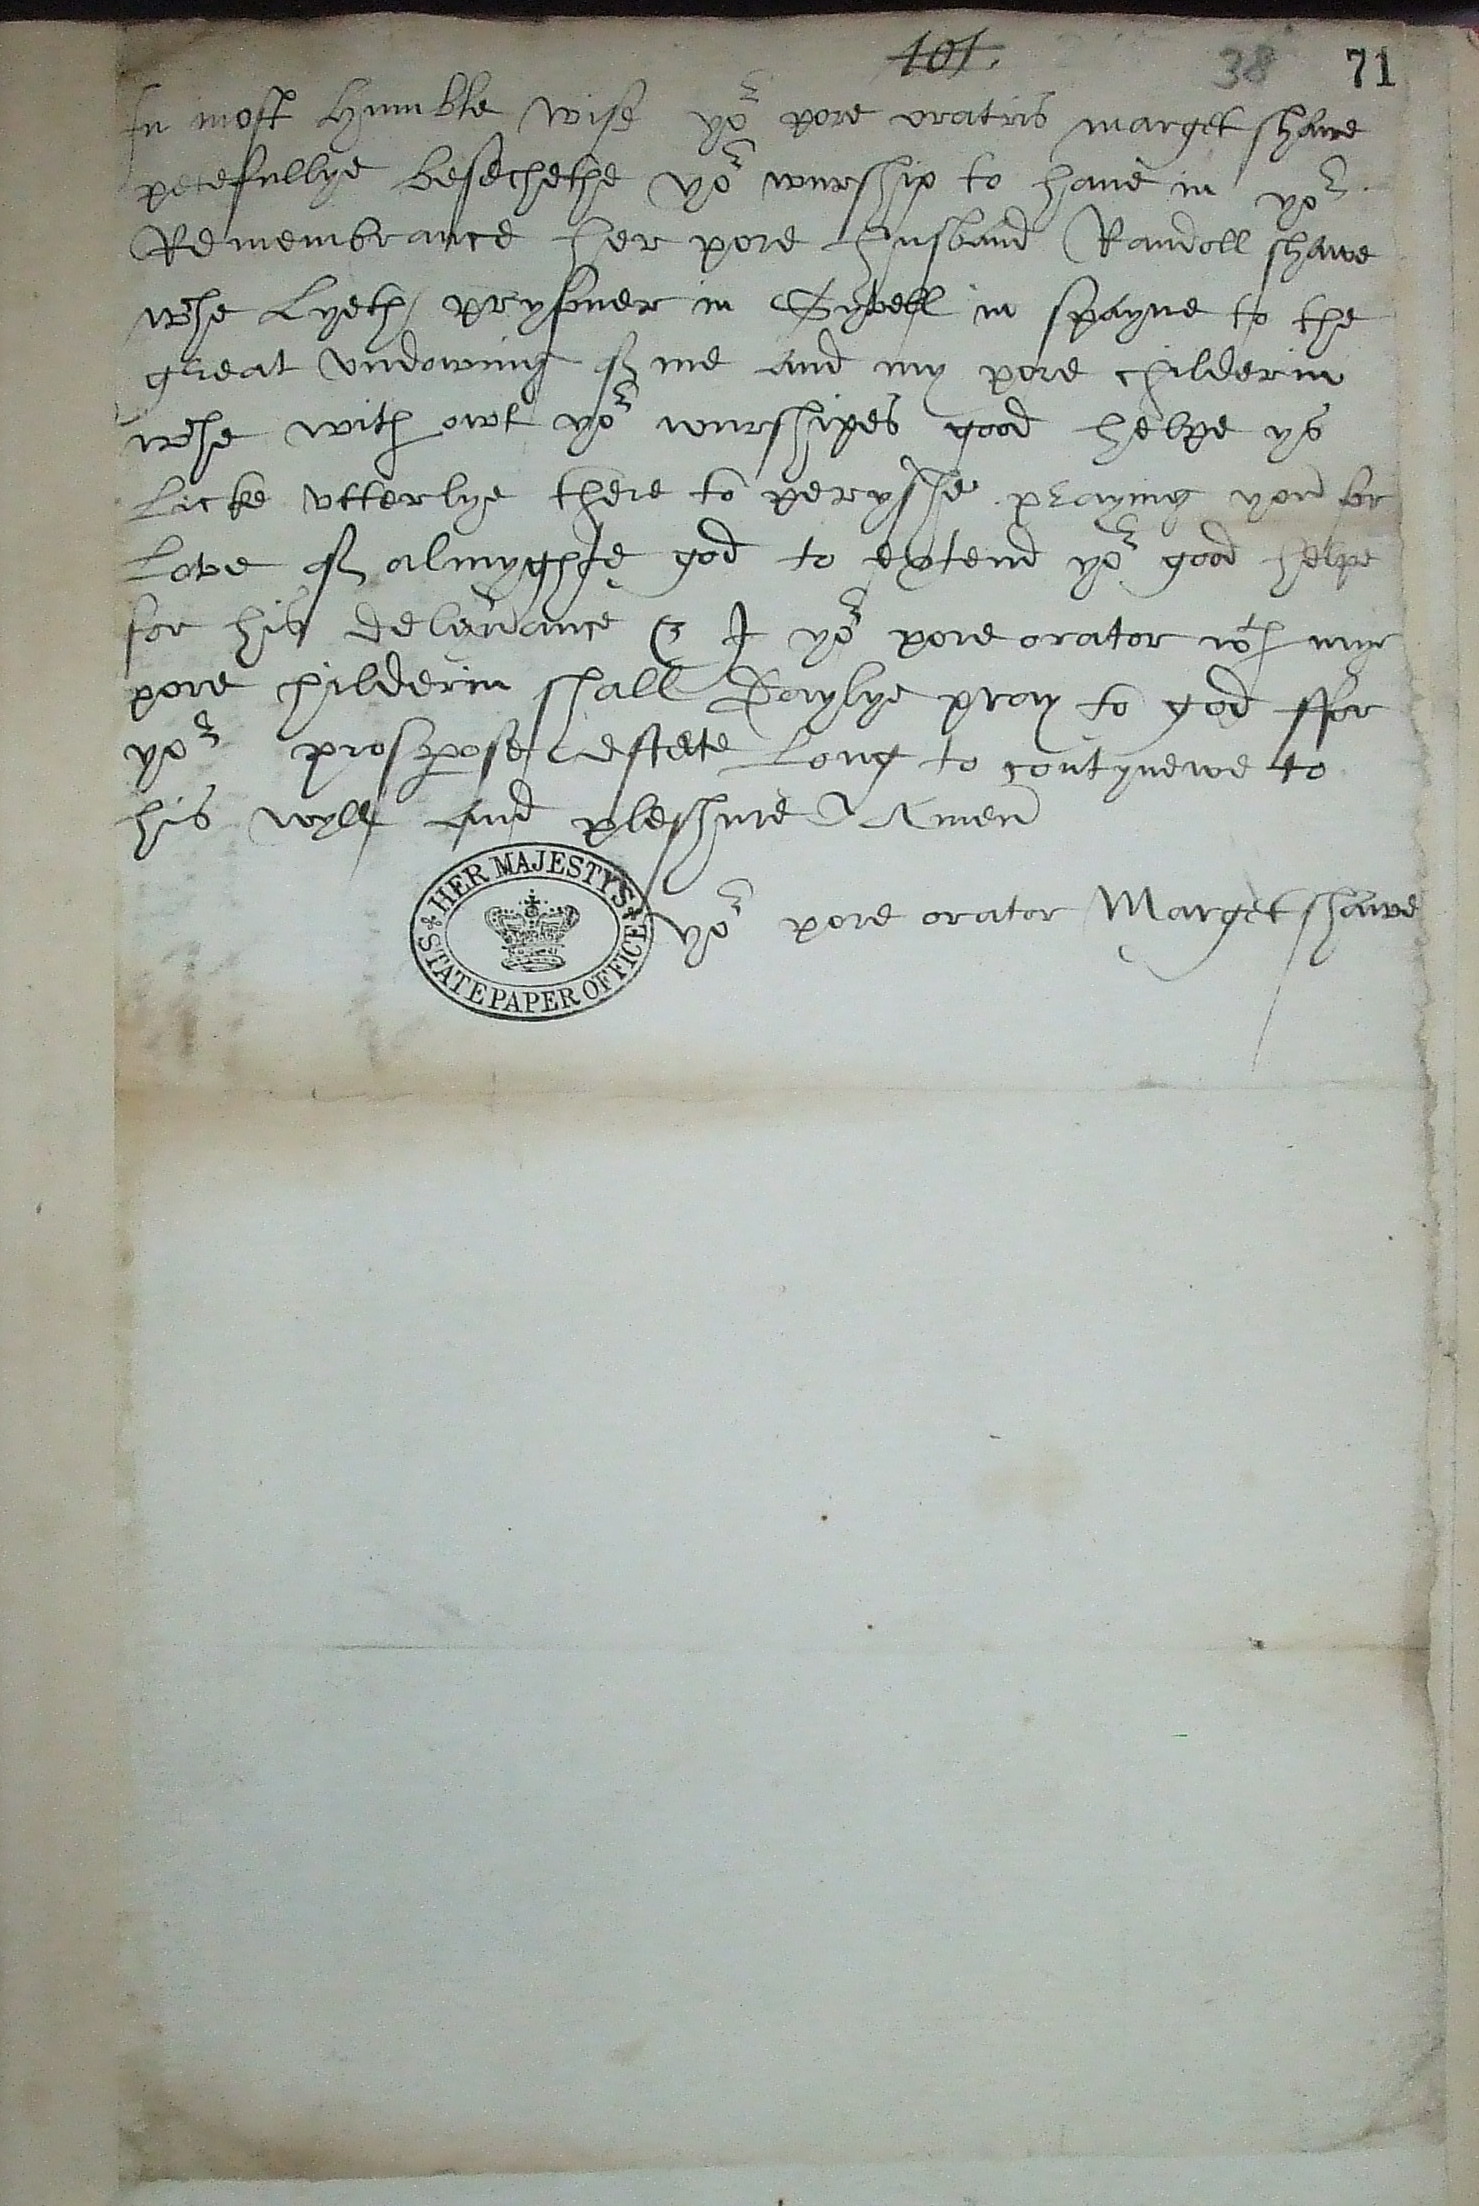 101.
38 71
In most Humble wise yor pore oratris marget shawe
petefullye besechethe yor wurship to have in yor
Remembrance her pore Husband Randoll shawe
wche Lyeth prysoner in Syvell in spayne to the
great undowing of me and my pore childerin
wche with owt yor wurshipes good helpe ys
Licke utterlye there to peryshe praying you for
Love of almyghte god to extend yor good helpe
for his deliverance & I yor pore orator wth my
pore childerin shall Daylye pray to god ffor
yor prosperose estate Long to contynewe to
his wyll and pleshure Amen
yor pore orator Marget shawe
HER MAJESTY'S
STATE PAPER OFFICE